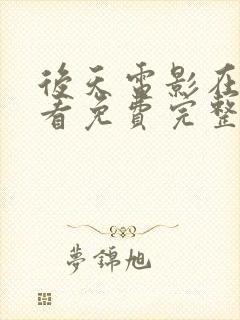 後天電影在
看免費完整
夢錦旭